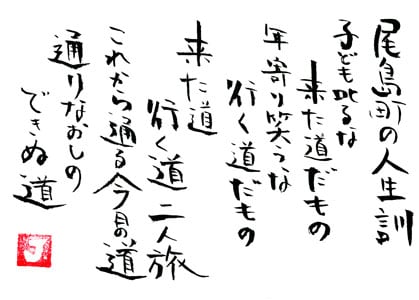 尾島町の人生訓
子ども叱るな
来た道だもの
年寄り笑うな
行く道だもの
来た道
行く道 二人旅
これから通る今日の道
通りなおしの
できぬ道